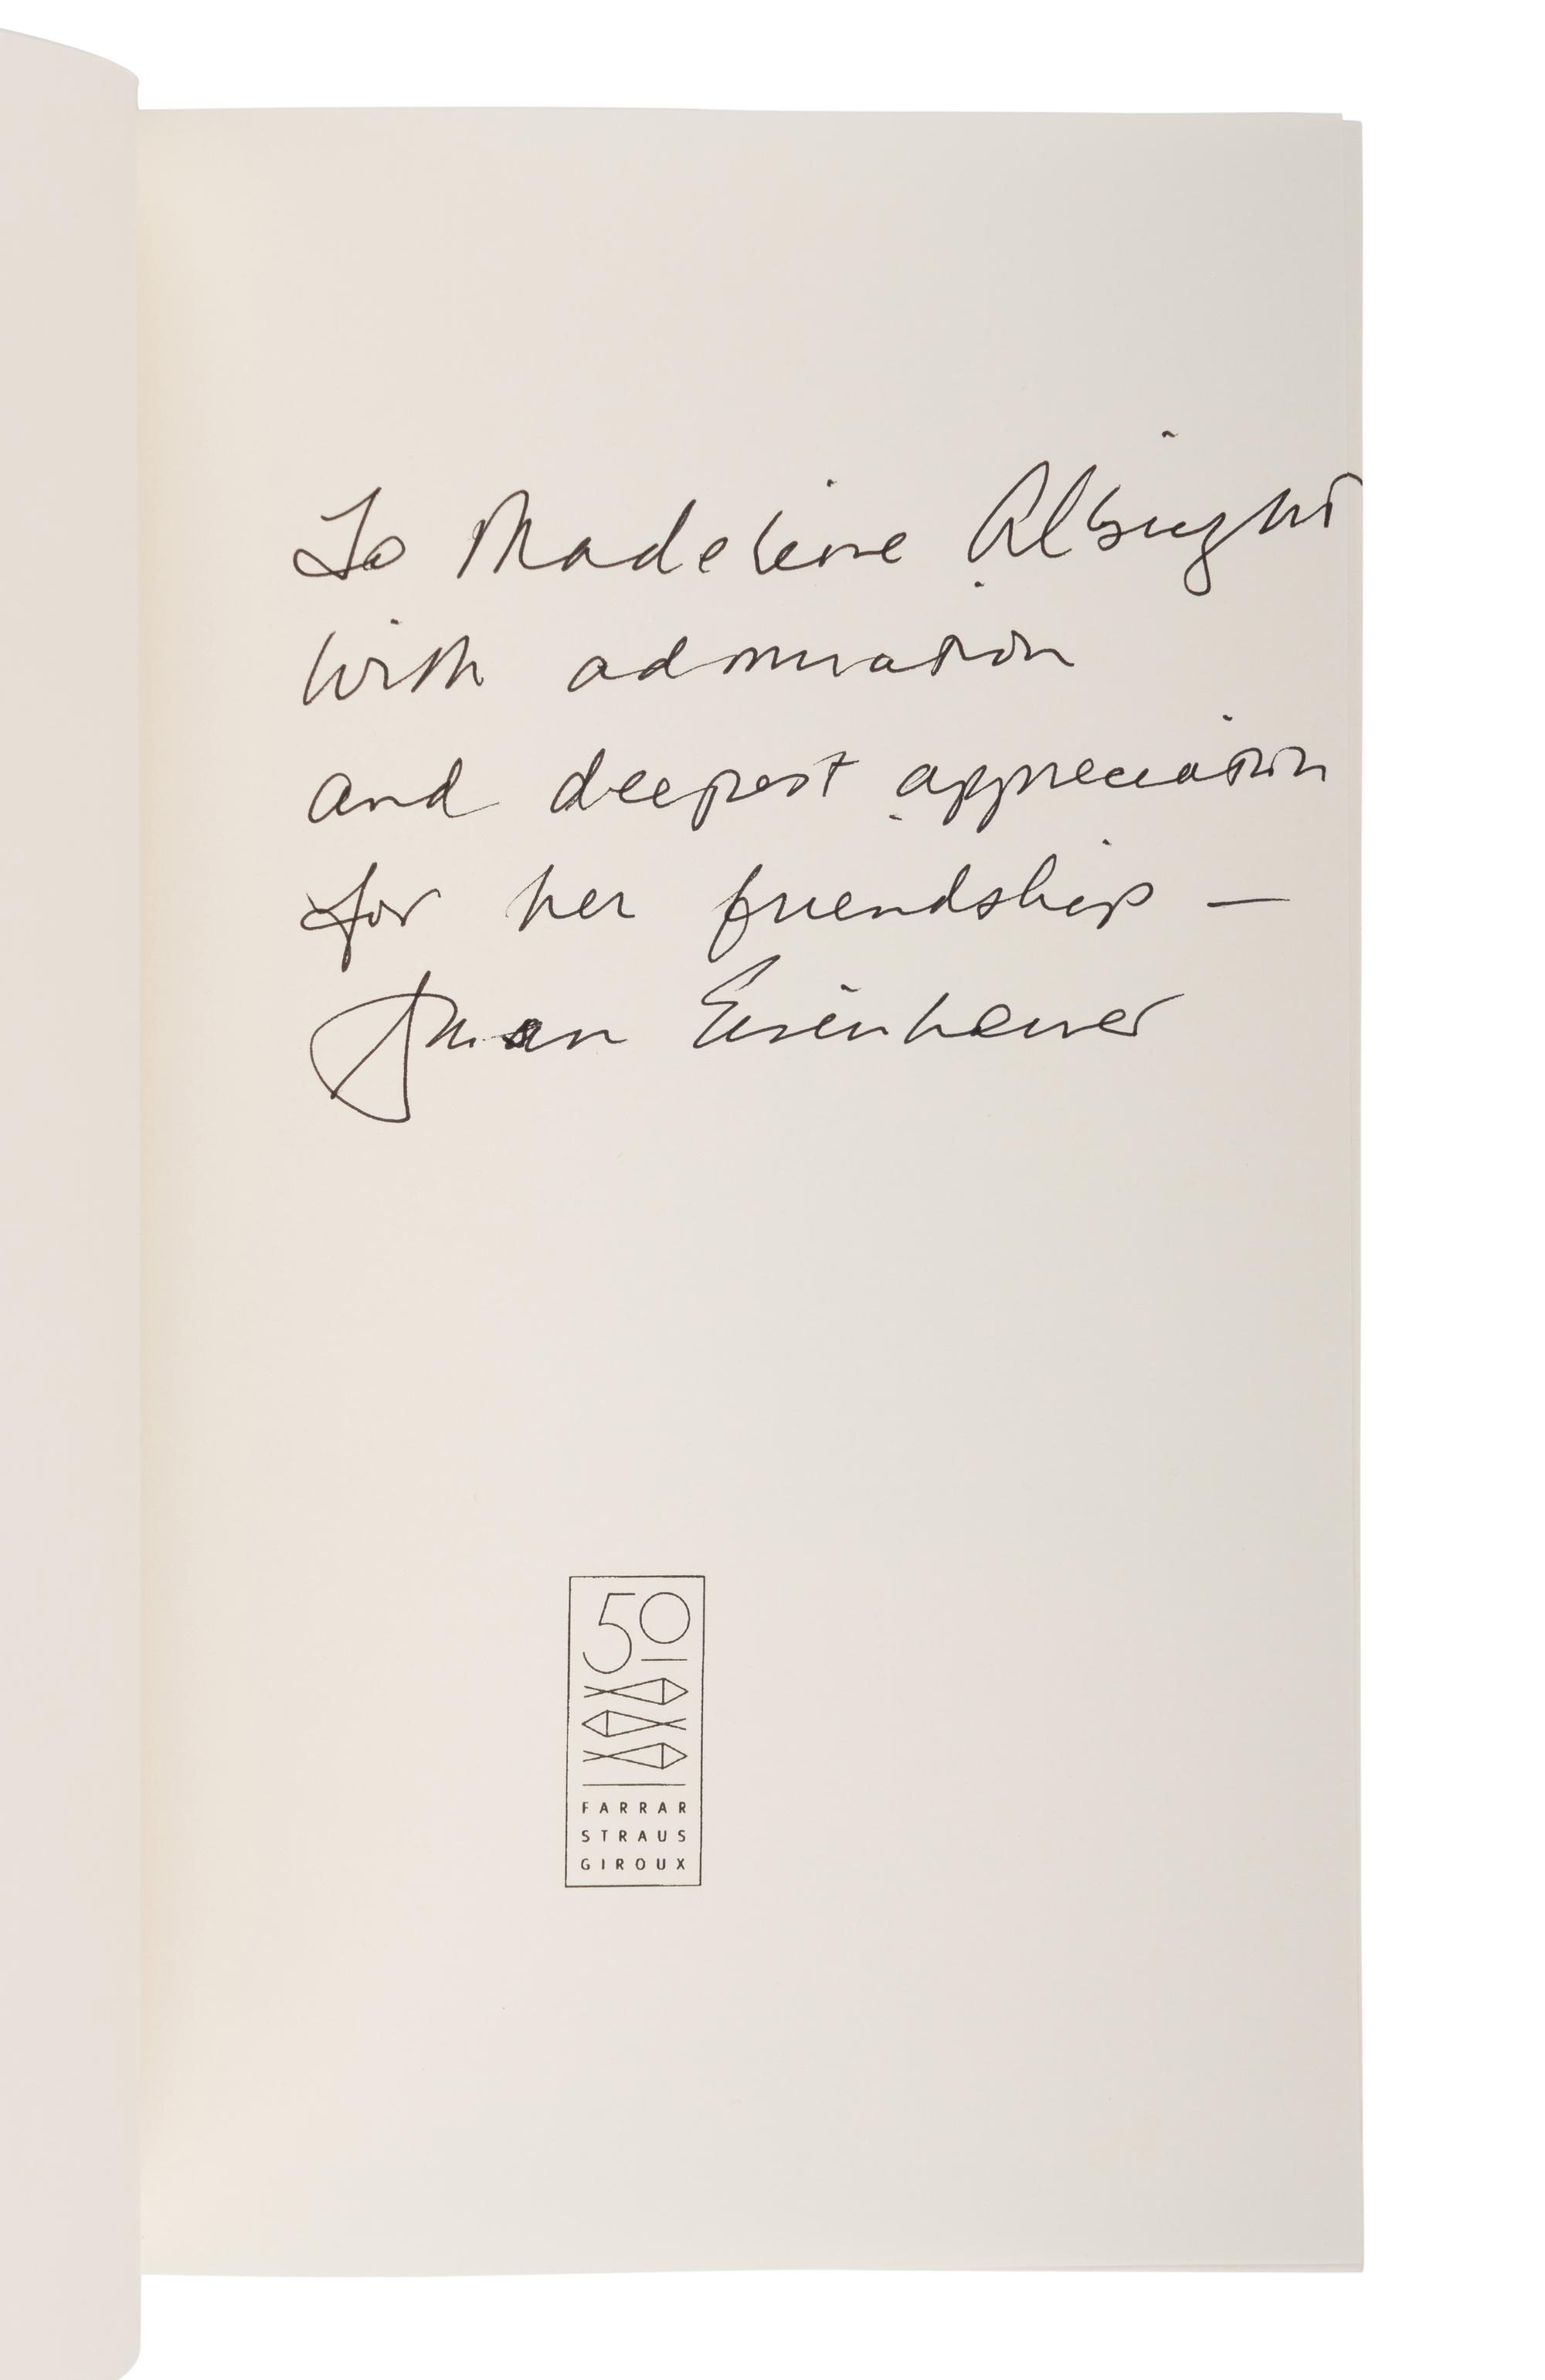 To Madeleine Albright
with admiration
and deepest appreciation
for her friendship —
Susan Eisenhower
50
FARRAR
STRAUS
GIROUX